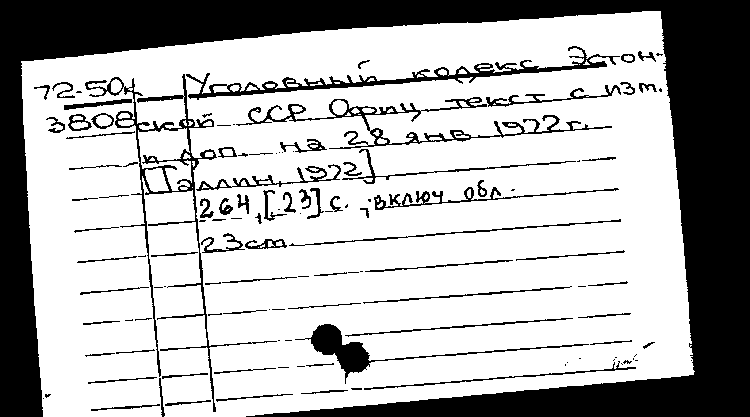 72-50к Уголовный кодекс Эстон-
3808 ской ССР Офиц. текст с изм.
и доп. на 28 янв. 1972 г.
[Таллин, 1972].
264, [23] с., включ. обл.
23 cm.